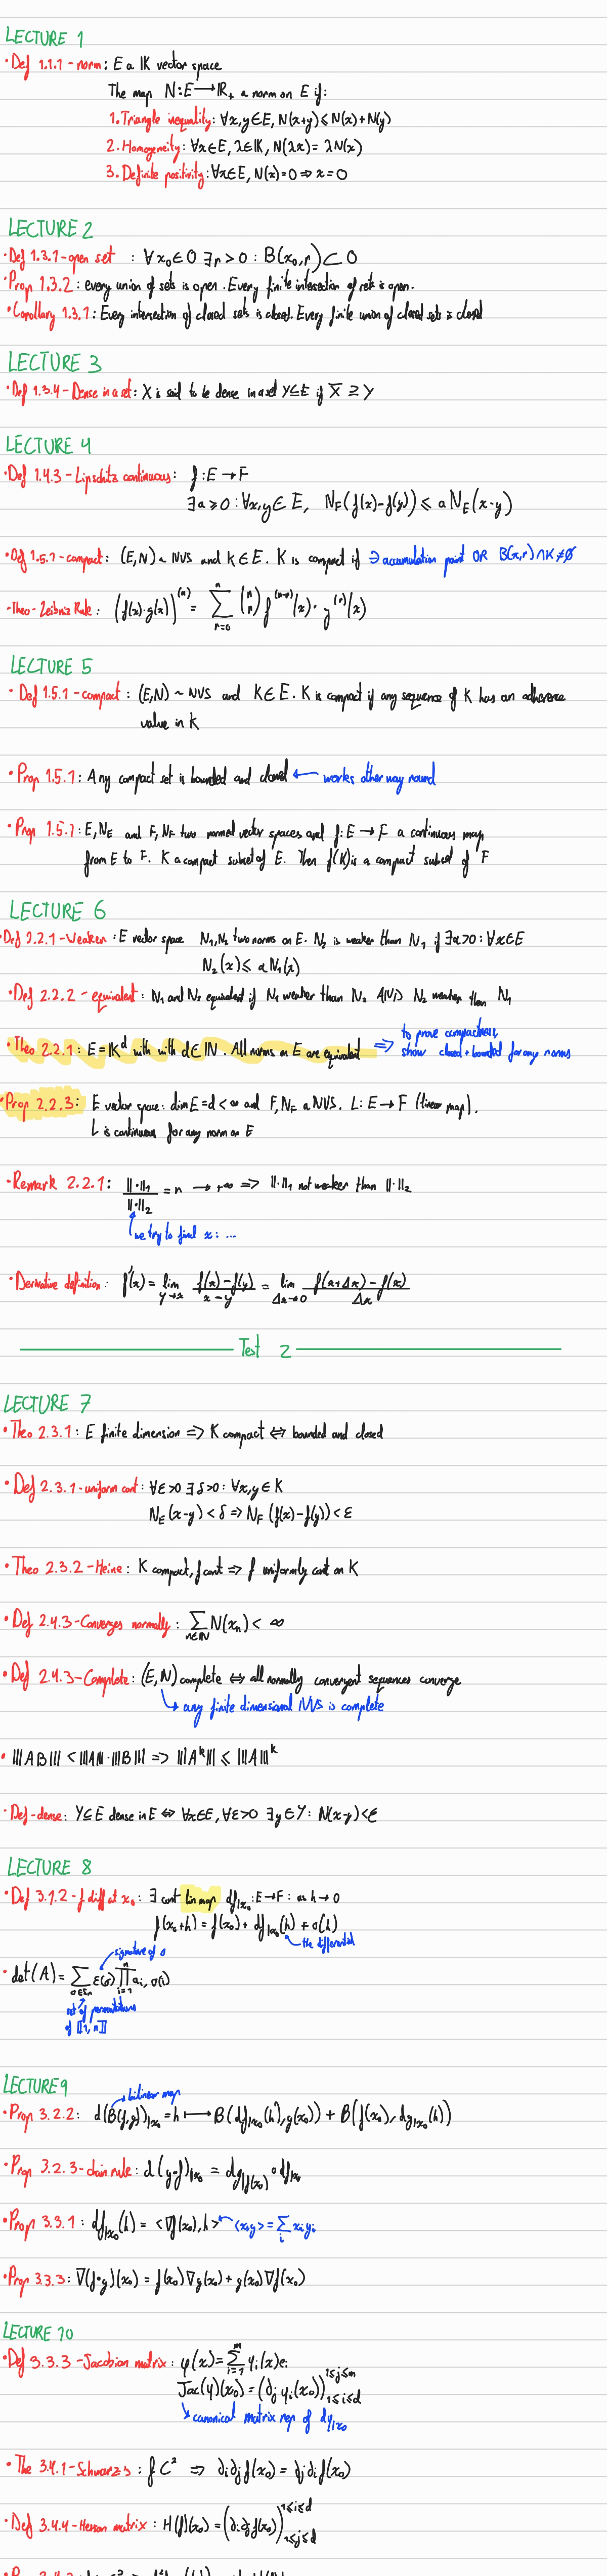 LECTURE 1
• Def 1.1.1 - norm : E a IK vector space
The map N : E → IR+ a norm on E if :
1. Triangle inequality : ∀x,y ∈ E, N(x+y) ≤ N(x) + N(y)
2. Homogeneity : ∀x ∈ E, λ ∈ IK, N(λx) = λN(x)
3. Definite positivity : ∀x ∈ E, N(x) = 0 ⇒ x = 0
LECTURE 2
• Def 1.3.1 - open set : ∀x₀ ∈ O ∃r > 0 : B(x₀,r) ⊂ O
• Prop 1.3.2 : every union of sets is open. Every finite intersection of sets is open.
• Corollary 1.3.1 : Every intersection of closed sets is closed. Every finite union of closed sets is closed
LECTURE 3
• Def 1.3.4 - Dense in a set : X is said to be dense in a set Y ⊆ E if X̄ ⊇ Y
LECTURE 4
• Def 1.4.3 - Lipschitz continuous : f : E → F
∃a ≥ 0 : ∀x,y ∈ E, N_F(f(x) - f(y)) ≤ a N_E(x-y)
• Def 1.5.1 - compact : (E,N) a NVS and K ∈ E. K is compact if ∃ accumulation point OR B(x,r) ∩ K ≠ ∅
• Theo - Leibniz Rule : (f(x)·g(x))^(n) = Σ_{r=0}^{n} (n r) f^(n-r)(x) · g^(r)(x)
LECTURE 5
• Def 1.5.1 - compact : (E,N) ~ NVS and K ∈ E. K is compact if any sequence of K has an adherence
value in K
• Prop 1.5.1 : Any compact set is bounded and closed ← works other way round
• Prop 1.5.1 : E, N_E and F, N_F two normed vector spaces and f : E → F a continuous map
from E to F. K a compact subset of E. Then f(K) is a compact subset of F
LECTURE 6
• Def 2.2.1 - Weaker : E vector space N₁, N₂ two norms on E. N₂ is weaker than N₁ if ∃a>0 : ∀x∈E
N₂(x) ≤ a N₁(x)
• Def 2.2.2 - equivalent : N₁ and N₂ equivalent if N₁ weaker than N₂ AND N₂ weaker than N₁
• Theo 2.2.1 : E = IK^d with with d ∈ IN. All norms on E are equivalent ⇒ to prove compactness,
show closed + bounded for any norms
• Prop 2.2.3 : E vector space : dim E = d < ∞ and F, N_F a NVS. L : E → F (linear map).
L is continuous for any norm on E
• Remark 2.2.1 : ||·||₁ / ||·||₂ = n → +∞ ⇒ ||·||₁ not weaker than ||·||₂
we try to find x : ...
• Derivative definition : f'(x) = lim_{y→x} (f(x) - f(y))/(x-y) = lim_{Δx→0} (f(x+Δx) - f(x))/Δx
Test 2
LECTURE 7
• Theo 2.3.1 : E finite dimension ⇒ K compact ⇔ bounded and closed
• Def 2.3.1 - uniform cont : ∀ε>0 ∃δ>0 : ∀x,y ∈ K
N_E(x-y) < δ ⇒ N_F(f(x) - f(y)) < ε
• Theo 2.3.2 - Heine : K compact, f cont ⇒ f uniformly cont on K
• Def 2.4.3 - Converges normally : Σ_{n∈IN} N(x_n) < ∞
• Def 2.4.3 - Complete : (E,N) complete ⇔ all normally convergent sequences converge
↳ any finite dimensional NVS is complete
• |||AB||| < |||A|||·|||B||| ⇒ |||A^k||| ≤ |||A|||^k
• Def - dense : Y ⊆ E dense in E ⇔ ∀x∈E, ∀ε>0 ∃y∈Y : N(x-y) < ε
LECTURE 8
• Def 3.1.2 - f diff at x₀ : ∃ cont lin map df|x₀ : E → F : as h → 0
f(x₀+h) = f(x₀) + df|x₀(h) + o(h)
the differential
signature of σ
• det(A) = Σ_{σ∈Sn} ε(σ) ∏_{i=1}^{n} a_{i,σ(i)}
set of permutations
of [[1,n]]
LECTURE 9
bilinear map
• Prop 3.2.2 : d(B(f,g))|x₀ = h ↦ B(df|x₀(h), g(x₀)) + B(f(x₀), dg|x₀(h))
• Prop 3.2.3 - chain rule : d(g∘f)|x₀ = dg|f(x₀) ∘ df|x₀
• Prop 3.3.1 : df|x₀(h) = <∇f(x₀), h> ← <x,y> = Σ_i x_i y_i
• Prop 3.3.3 : ∇(f·g)(x₀) = f(x₀)∇g(x₀) + g(x₀)∇f(x₀)
LECTURE 10
• Def 3.3.3 - Jacobian matrix : φ(x) = Σ_{i=1}^{m} φ_i(x)e_i
Jac(φ)(x₀) = (∂_j φ_i(x₀))^{1≤j≤m}_{1≤i≤d}
↳ canonical matrix rep of dφ|x₀
• The 3.4.1 - Schwarz's : f C² ⇒ ∂i∂j f(x₀) = ∂j∂i f(x₀)
• Def 3.4.4 - Hessian matrix : H(f)(x₀) = (∂i∂j f(x₀))^{1≤i≤d}_{1≤j≤d}